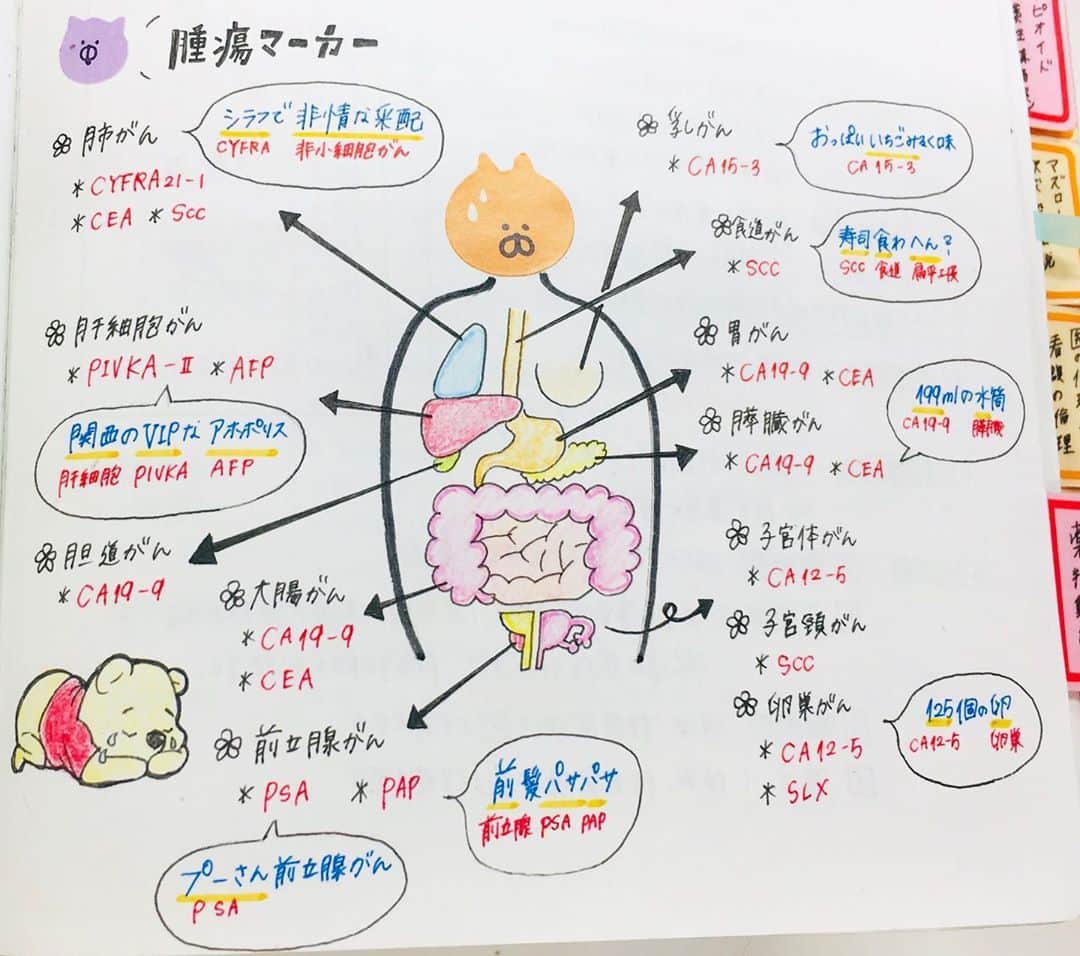 腫瘍マーカー
肺がん
シラフで 非情な采配
CYFRA 非小細胞がん
* CYFRA21-1
* CEA * SCC
乳がん
* CA15-3
おっぱいいちごみるく味
CA 15-3
食道がん
* SCC
寿司食わへん?
SCC 食道 扁平上皮
肝細胞がん
* PIVKA-Ⅱ * AFP
関西のVIPな アホポリス
肝細胞 PIVKA AFP
胃がん
* CA19-9 * CEA
膵臓がん
* CA19-9 * CEA
199mlの水筒
CA19-9 膵臓
胆道がん
* CA19-9
大腸がん
* CA19-9
* CEA
子宮体がん
* CA12-5
子宮頸がん
* SCC
卵巣がん
* CA12-5
* SLX
125個の卵
CA12-5 卵巣
前立腺がん
* PSA * PAP
前髪パサパサ
前立腺 PSA PAP
プーさん前立腺がん
P SA
ピオイド
マズロー
看護の倫理